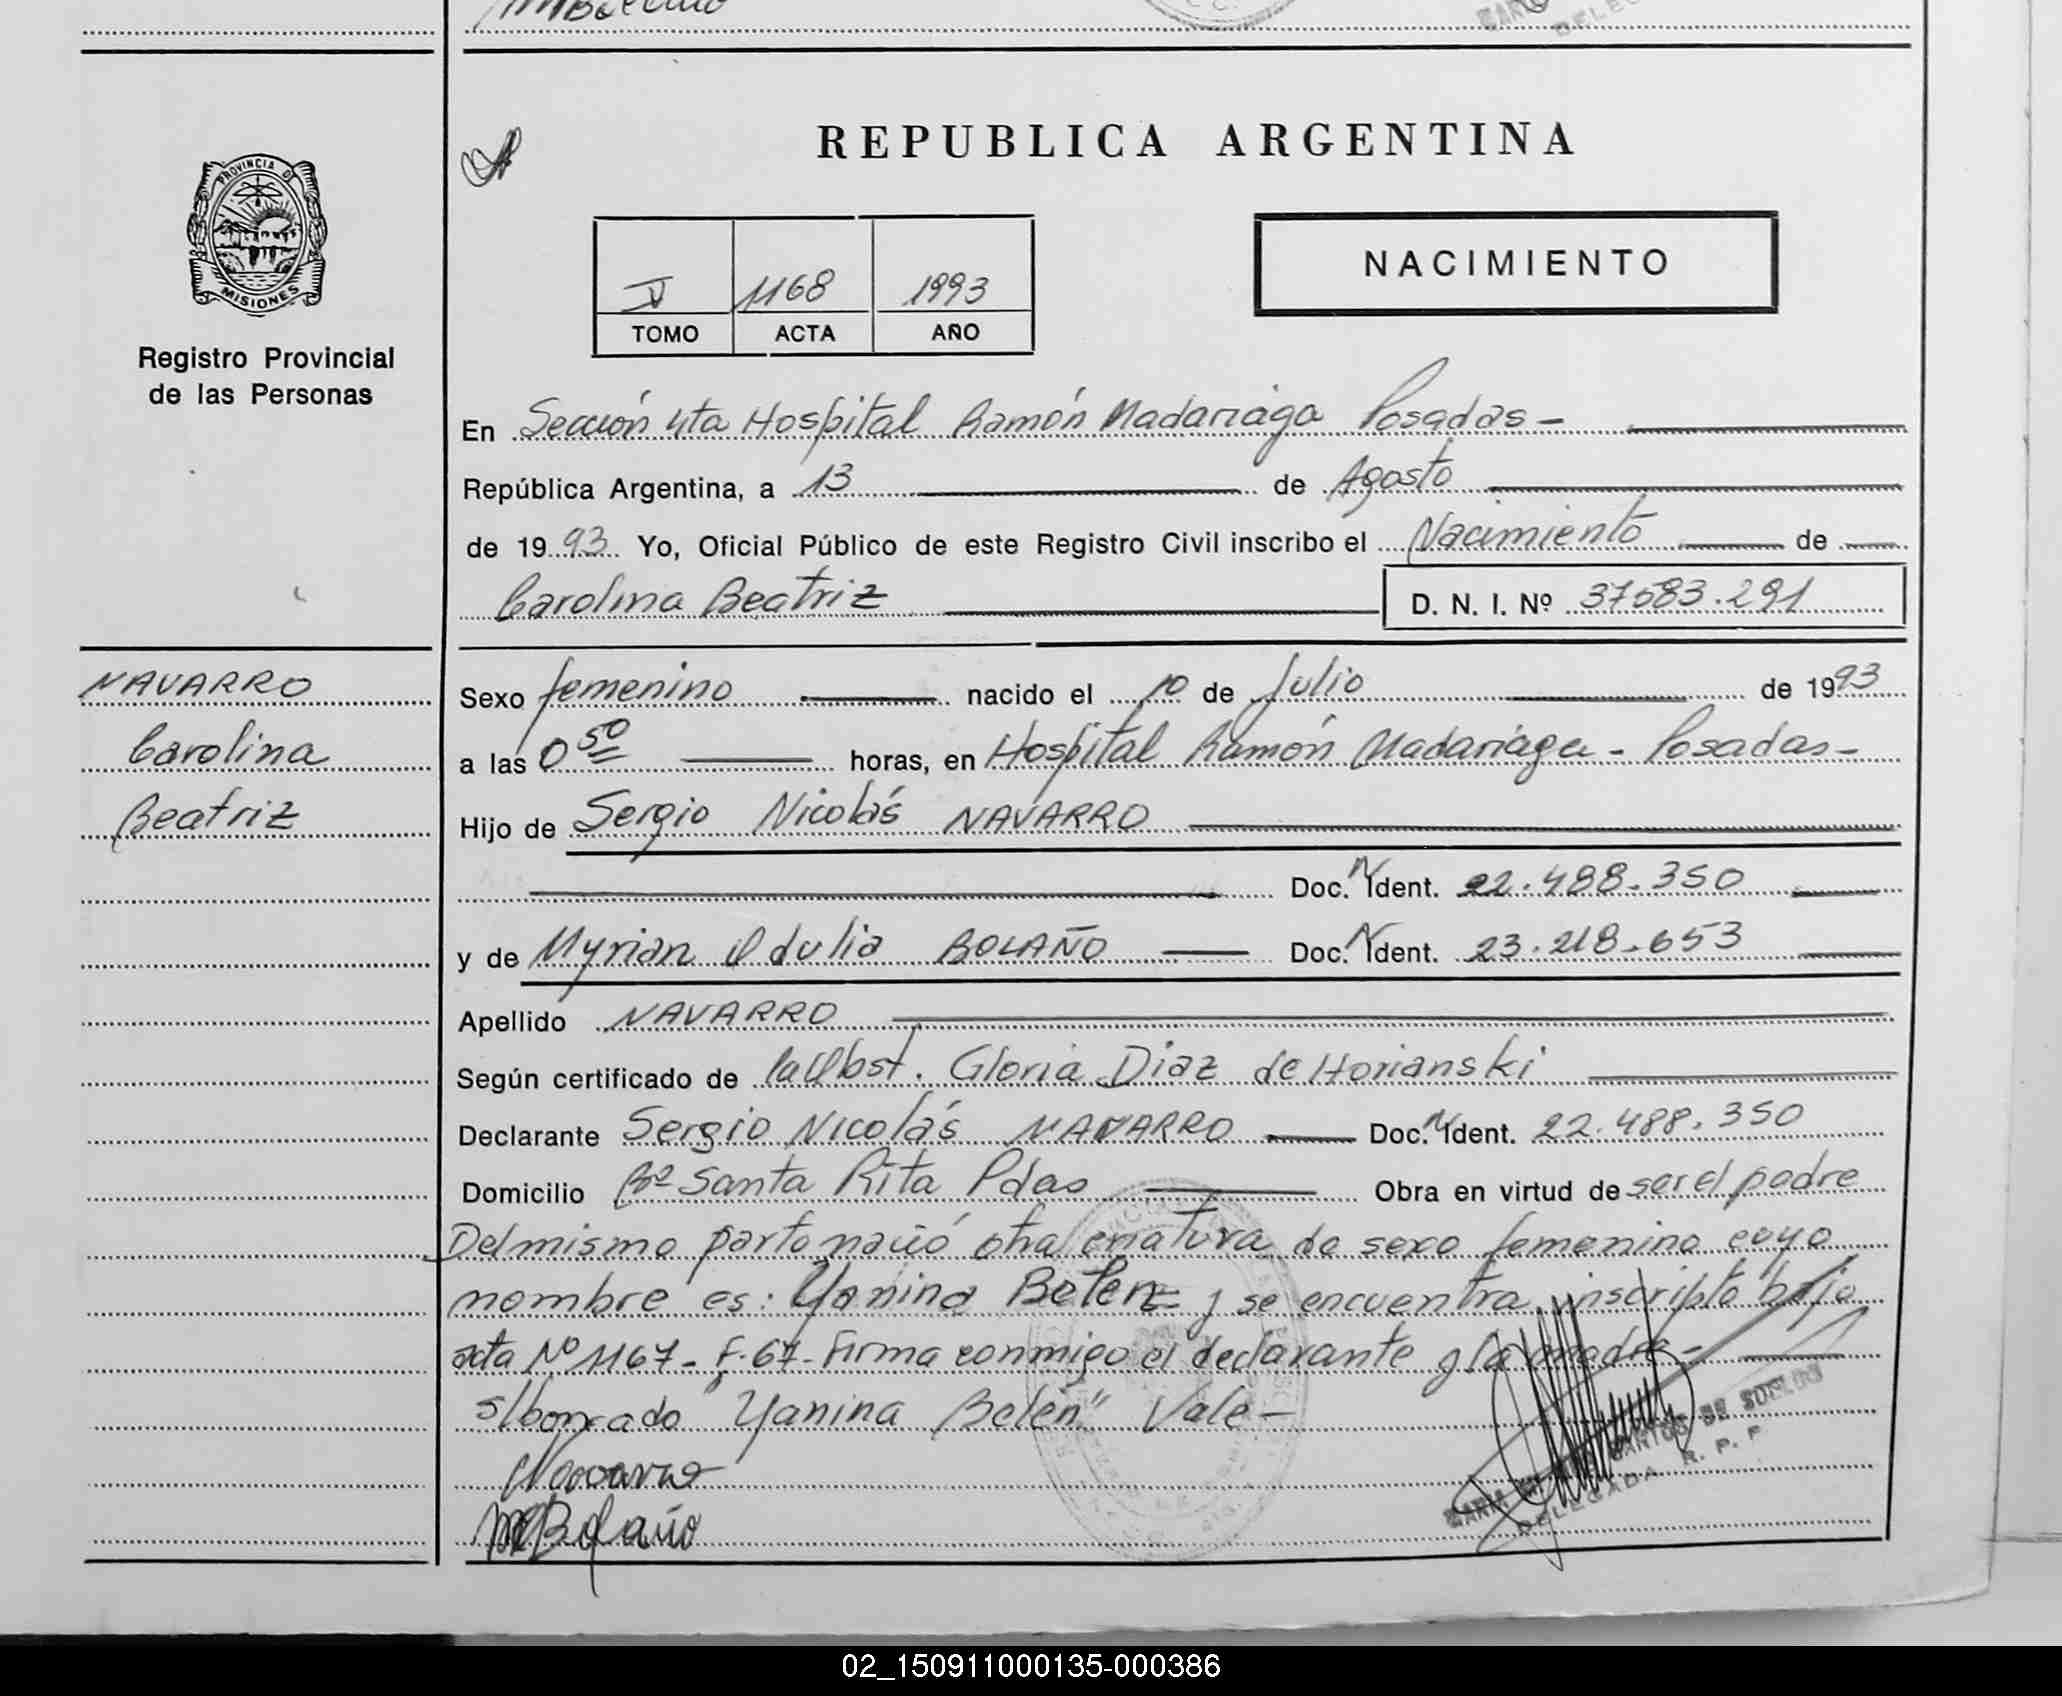 REPUBLICA ARGENTINA
PROVINCIA DE
MISIONES
Registro Provincial
de las Personas
V 1168 1993
TOMO ACTA AÑO
NACIMIENTO
En Sección 4ta Hospital Ramón Madariaga Posadas -
República Argentina, a 13 de Agosto
de 1993 Yo, Oficial Público de este Registro Civil inscribo el Nacimiento de
Carolina Beatriz D. N. I. Nº 37583.291
NAVARRO
Carolina
Beatriz
Sexo femenino nacido el 10 de Julio de 1993
a las 0 50 horas, en Hospital Ramón Madariaga - Posadas -
Hijo de Sergio Nicolás NAVARRO
Doc. N Ident. 22.488.350
y de Myrian Idulia BOLAÑO Doc. N Ident. 23.218.653
Apellido NAVARRO
Según certificado de la Obst. Gloria Diaz de Horianski
Declarante Sergio Nicolás NAVARRO Doc. N Ident. 22.488.350
Domicilio Bº Santa Rita Pdas Obra en virtud de ser el padre
Del mismo parto nació otra criatura de sexo femenino cuyo
nombre es: Yanina Belén y se encuentra inscripto bajo
acta Nº 1167 - F. 67 - Firma conmigo el declarante y la madre -
s/borrado "Yanina Belén" Vale -
Navarro
MBolaño
SANTOS DE
DELEGADA R. P. P.
02_150911000135-000386